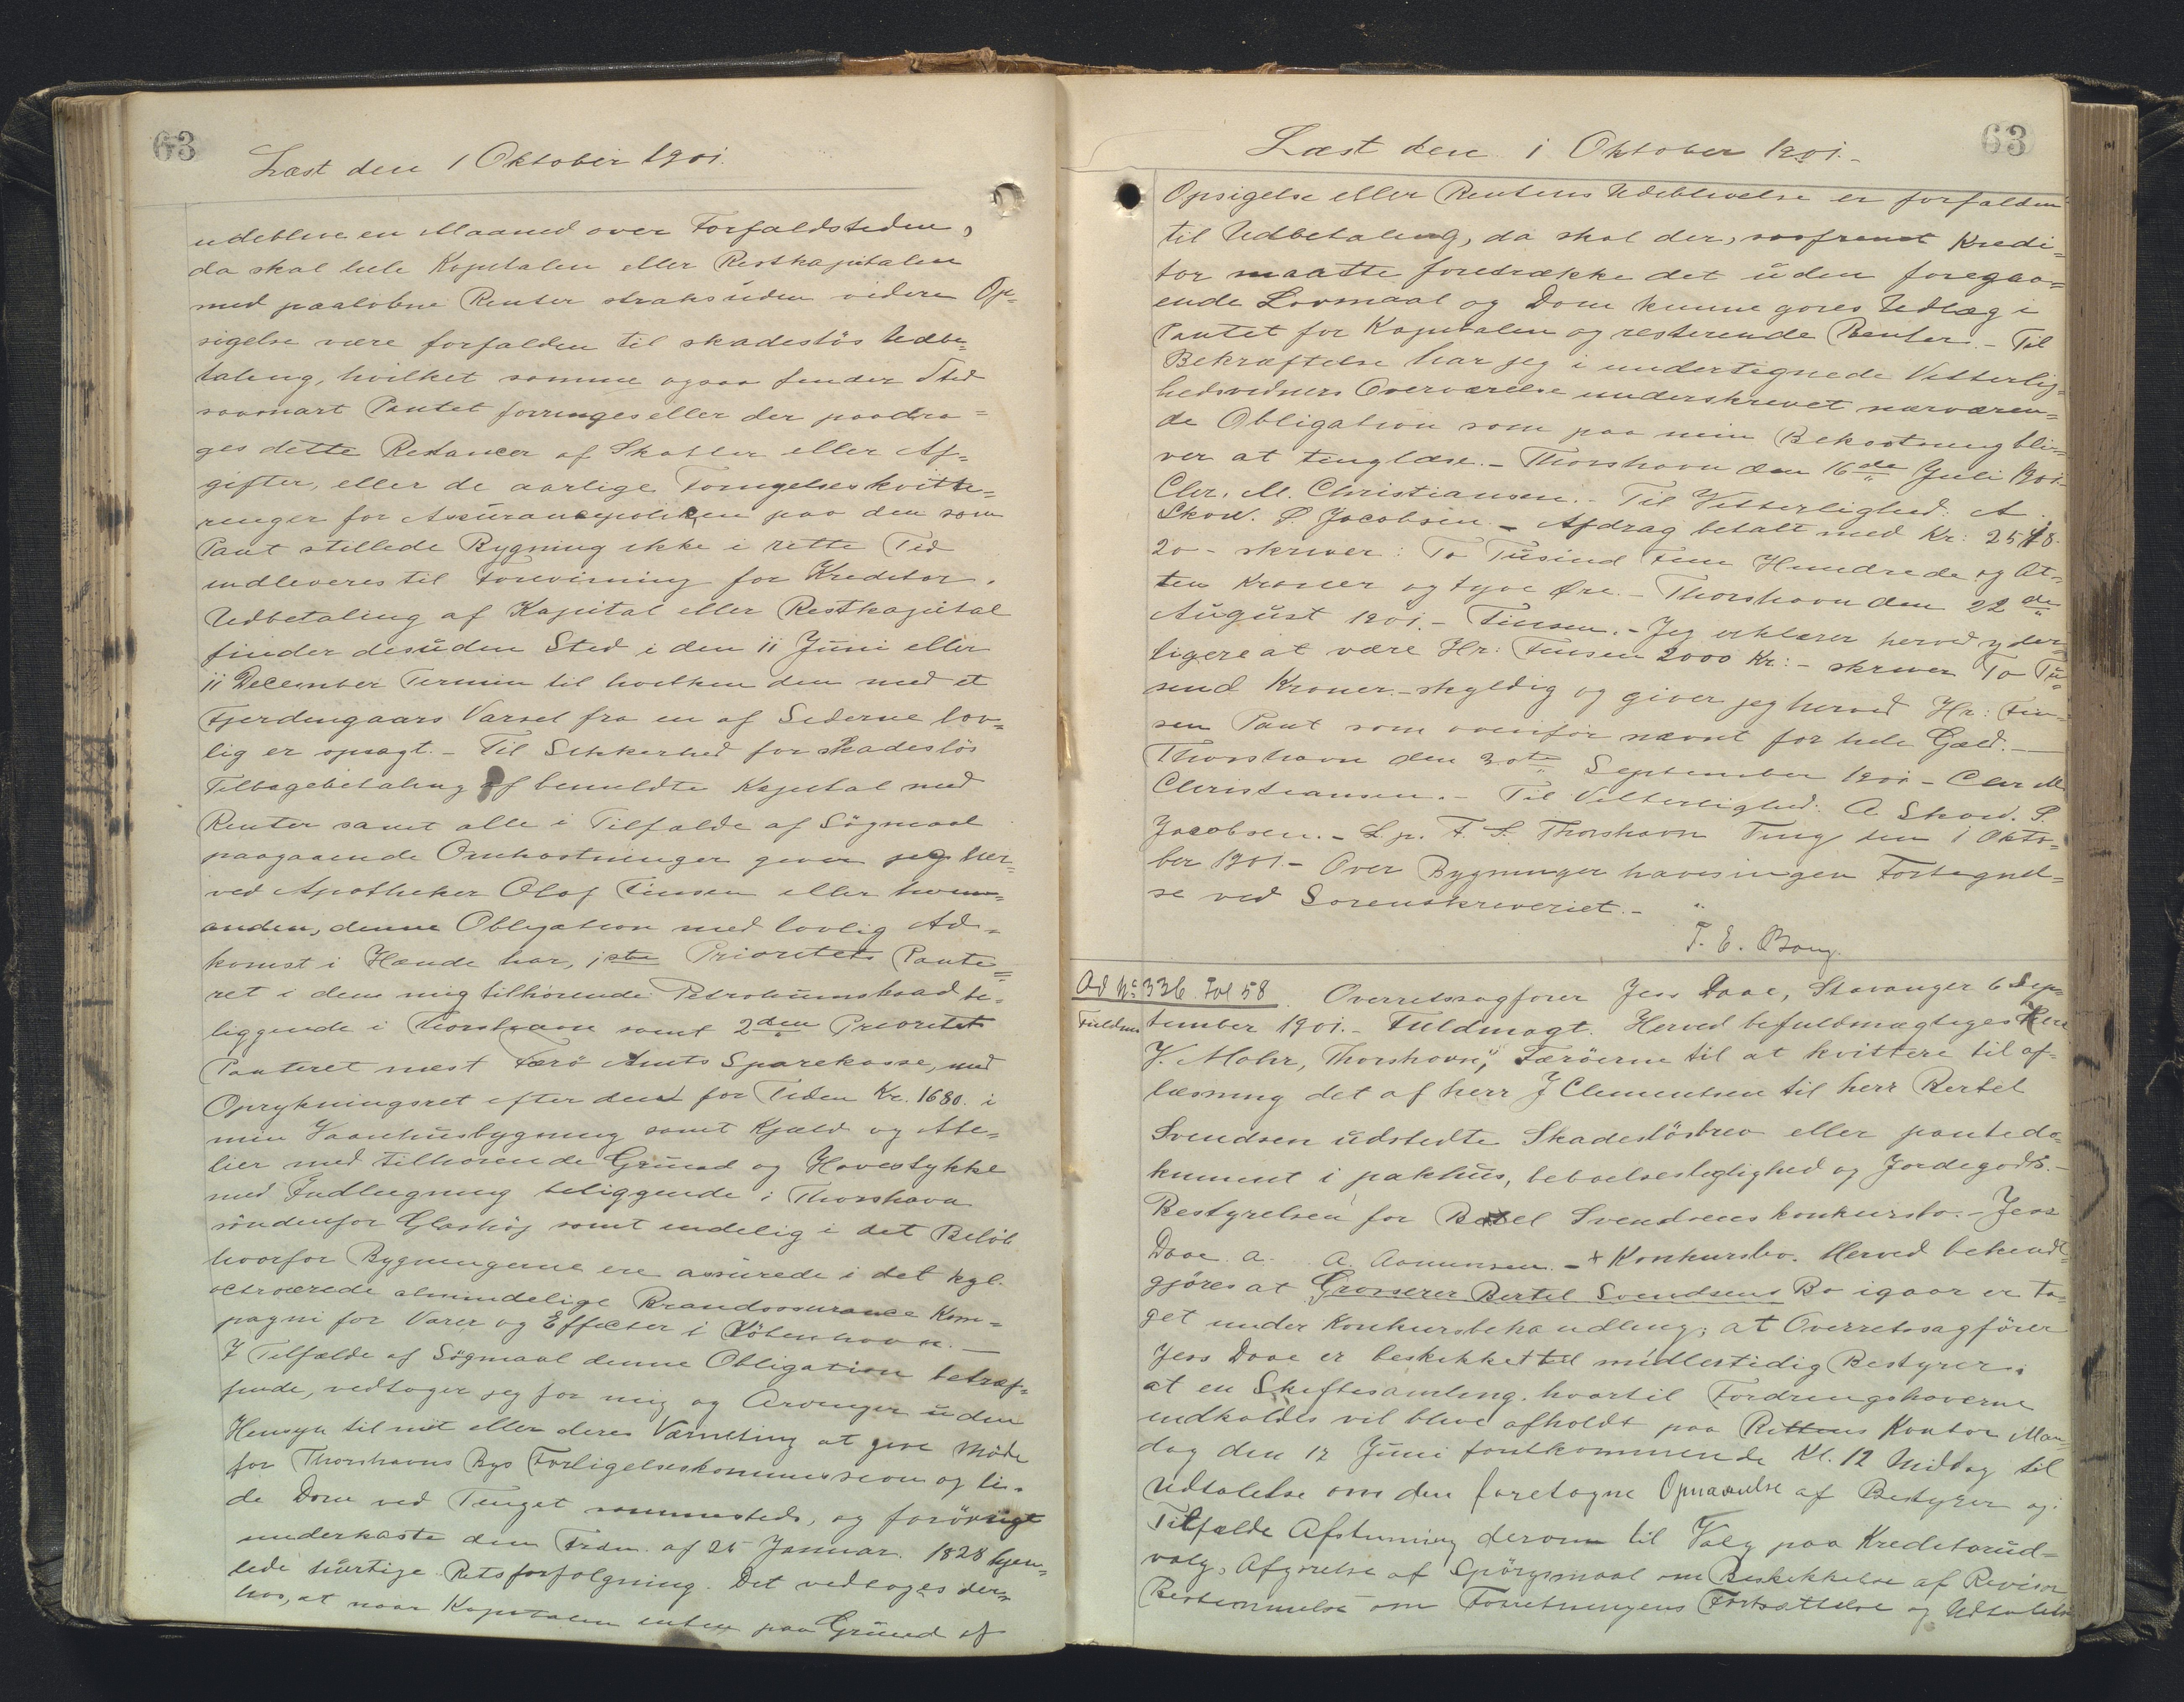 63
Læst den 1 Oktober 1901.
udeblive en Maaned over Forfaldstiden,
da skal hele Kapitalen eller Restkapitalen
med paaløbne Renter straks uden videre Op=
sigelse være forfalden til skadesløs Udbe=
taling, hvilket samme ogsaa finder Sted
saasnart Pantet forringes eller der paadra=
ges dette Restancer af Skatter eller Af=
gifter, eller de aarlige Fornyelseskvitte=
ringer for Assurancepolicen paa den som
Pant stillede Bygning ikke i rette Tid
indleveres til Forevisning for Kreditor.
Udbetaling af Kapital eller Restkapital
finder desuden Sted i den 11 Juni eller
11 December Termin til hvilken den med et
Fjerdingaars Varsel fra en af Siderne lov=
lig er opsagt. - Til Sikkerhed for skadesløs
Tilbagebetaling af bemeldte Kapital med
Renter samt alle i Tilfælde af Søgmaal
paagaaende Omkostninger giver jeg her=
ved Apotheker Olaf Finsen eller hvem=
anden, denne Obligation med lovlig Ad=
komst i Hænde har, 1ste Prioritets Pante=
ret i den mig tilhørende Petroleumskad be=
liggende i Thorshavn samt 2den Prioritets
Panteret næst Færø Amts Sparekasse, med
Oprykningsret efter den for Tiden Kr. 1680. i
min Vaanhusbygning samt Kjeld og Ate=
lier med tilhørende Grund og Havestykke
med Indhegning beliggende i Thorshavn
søndenfor Glashøj samt endelig i det Beløb
hvorfor Bygningerne ere assurede i det kgl.
octroierede almindelige Brandassurance Kom=
pagni for Varer og Effecter i København. —
I Tilfælde af Søgmaal denne Obligation betræf=
fende, vedtager jeg for mig og Arvinger uden
Hensyn til mit eller deres Værneting at give Møde
for Thorshavns Bys Forligelseskommission og li=
de Dom ved Tinget sammesteds, og forøvrigt
underkaste den Frdn. af 25 Januar 1828 hjem=
lede hurtige Retsforfølgning. Det vedtages der=
hos, at naar Kapitalen enten paa Grund af
63
Læst den 1 Oktober 1901.-
Opsigelse eller Rentens Udeblivelse er forfalden
til Udbetaling, da skal der, saafremt Kredi=
tor maatte foretrække det uden foregaa=
ende Lovmaal og Dom kunne gøres Udlæg i
Pantet for Kapitalen og resterende Renter. - Til
Bekræftelse har jeg i undertegnede Vitterlig=
hedsvidners Overværelse underskrevet nærværen=
de Obligation som paa min Bekostning bli=
ver at tinglæse. - Thorshavn den 16de Juli 1901-
Chr. M. Christiansen. - Til Vitterlighed: A
Skow. P. Jacobsen. - Afdrag betalt med Kr: 2518.
20 - skriver: To Tusind Fem Hundrede og At=
ten Kroner og tyve Øre. - Thorshavn den 22de
August 1901. - Finsen. - Jeg erklærer herved yder=
ligere at være Hr: Finsen 2000 Kr: - skriver To Tu=
sind Kroner - skyldig og giver jeg herved Hr: Fin=
sen Pant som ovenfor nævnt for hele Gæld. —
Thorshavn den 30te September 1901 - Chr M
Christiansen. - Til Vitterlighed: A Skow. P.
Jacobsen. - L. p. F. S. Thorshavn Ting den 1 Okto=
ber 1901. - Over Bygninger haves ingen Fortegnel=
se ved Sorenskriveriet. -
T. E. Bang.
Ad No 336 Fol 58
Fuldm.
Overretssagfører Jess Daae, Stavanger 6 Sep=
tember 1901. - Fuldmagt. Herved befuldmægtiges Herr
J. Mohr, Thorshavn, Færøerne til at kvittere til af=
læsning det af herr J Clementsen til herr Bertel
Svendsen udstedte Skadesløsbrev eller pantedo=
kument i pakhus, beboelsesleglighed og Jordegods. -
Bestyrelsen for Bertel Svendsens konkursbo. - Jess
Daae. a. A. Aanunsen. - + Konkursbo. Herved bekendt
gjøres at Grosserer Bertel Svendsens Bo igaar er ta=
get under Konkursbehandling; at Overretssagfører
Jess Daae er beskikket til midlertidig Bestyrer;
at en Skiftesamling, hvortil Fordringshaverne
indkaldes vil blive afholdt paa Rettens Kontor Man=
dag den 12 Juni førstkommende Kl. 12 Middag til
Udtalelse om den foretagne Opnævnelse af Bestyrer og i
Tilfælde Afstemning derom til Valg paa Kreditorud=
valg, Afgørelse af Spørgsmaal om Beskikkelse af Revisor
Bestemmelse om Forretningens Fortsættelse og Udtalelse